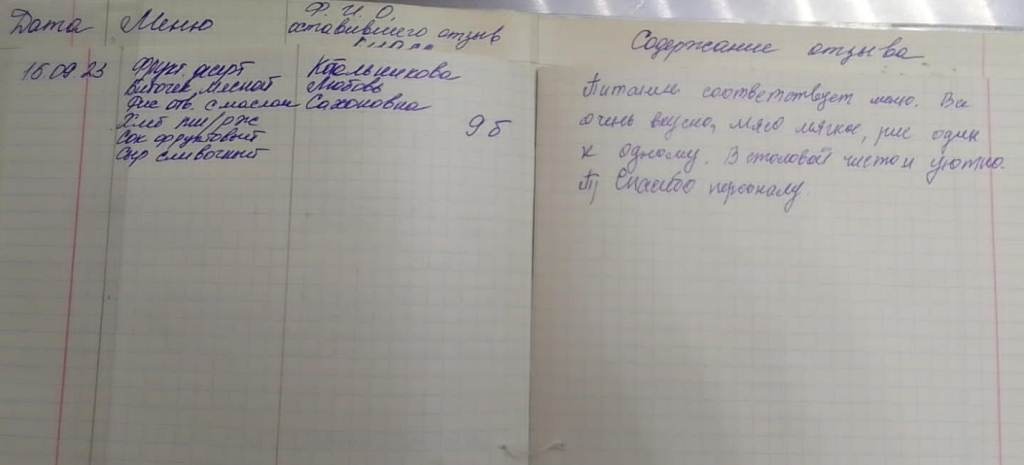 Дата Меню Ф.И.О. оставившего отзыв
Содержание отзыва
15.09.23
Фрукт десерт
Биточек мясной
Рис отв. с маслом
Хлеб пш/рж
Сок фруктовый
Сыр сливочный
Любовь
9 б
Питание соответствует меню. Все
очень вкусно, мясо мягкое, рис один
к одному. В столовой чисто и уютно.
Спасибо персоналу.